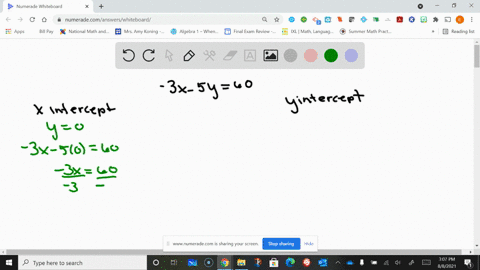 numerade.com - Numerade Whiteboard
numerade.com/answers/whiteboard/
Apps
YouTube
National Math and...
Mrs. Amy Koning -...
Algebra 1 – When...
Final Exam Review -...
IXL | Math, Languag...
Summer Math Pract...
-3x-5y=60
x intercept
y intercept
y=0
-3x-5(0)=60
-3x=60
-3 -
www.numerade.com is sharing your screen.
Stop sharing
Hide
Type here to search
3:07 PM
8/8/2021